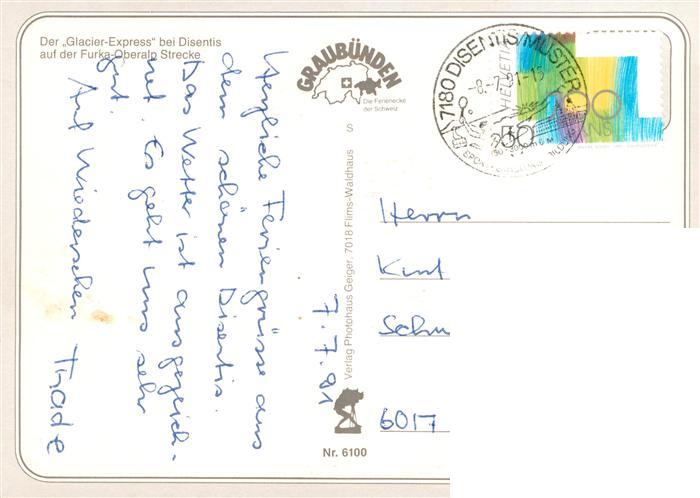 Der „Glacier-Express" bei Disentis
auf der Furka-Oberalp Strecke
GRAUBÜNDEN
Die Ferienecke
der Schweiz
S
Verlag Photohaus Geiger, 7018 Flims-Waldhaus
Nr. 6100
7.7.91
Herzliche Feriengrüsse aus
dem schönen Disentis.
Das Wetter ist ausgezeich-
net. Es geht uns sehr
gut.
Auf Wiedersehen
7180 DISENTIS/MUSTER
-8.-7.91-15
HELVETIA
50
700
ANS
Herrn
Kurt
6017